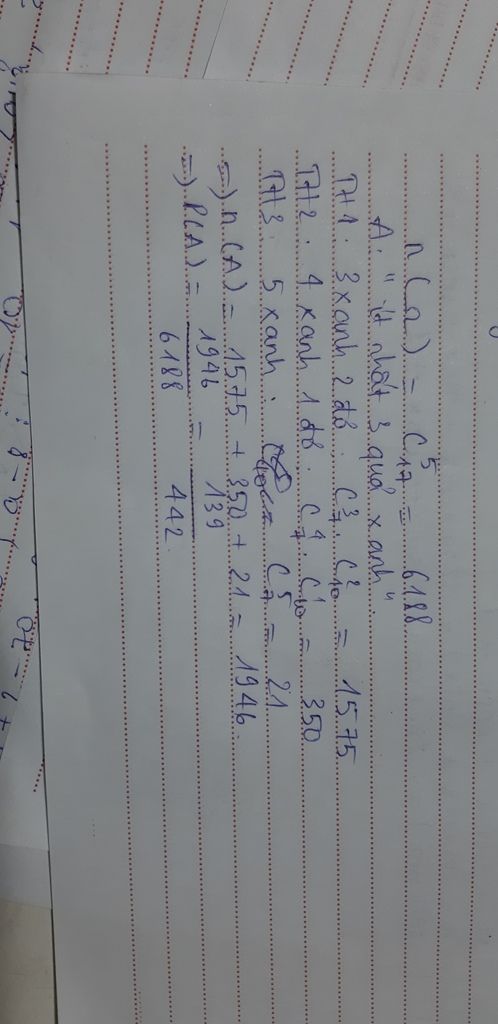 n(Ω) = C⁵₁₇ = 6188
A: "ít nhất 3 quả xanh".
TH1: 3 xanh 2 đỏ: C³₇ . C²₁₀ = 1575
TH2: 4 xanh 1 đỏ: C⁴₇ . C¹₁₀ = 350
TH3: 5 xanh: C⁵₇ = 21
=) n(A) = 1575 + 350 + 21 = 1946.
=) P(A) = 1946/6188 = 139/442.